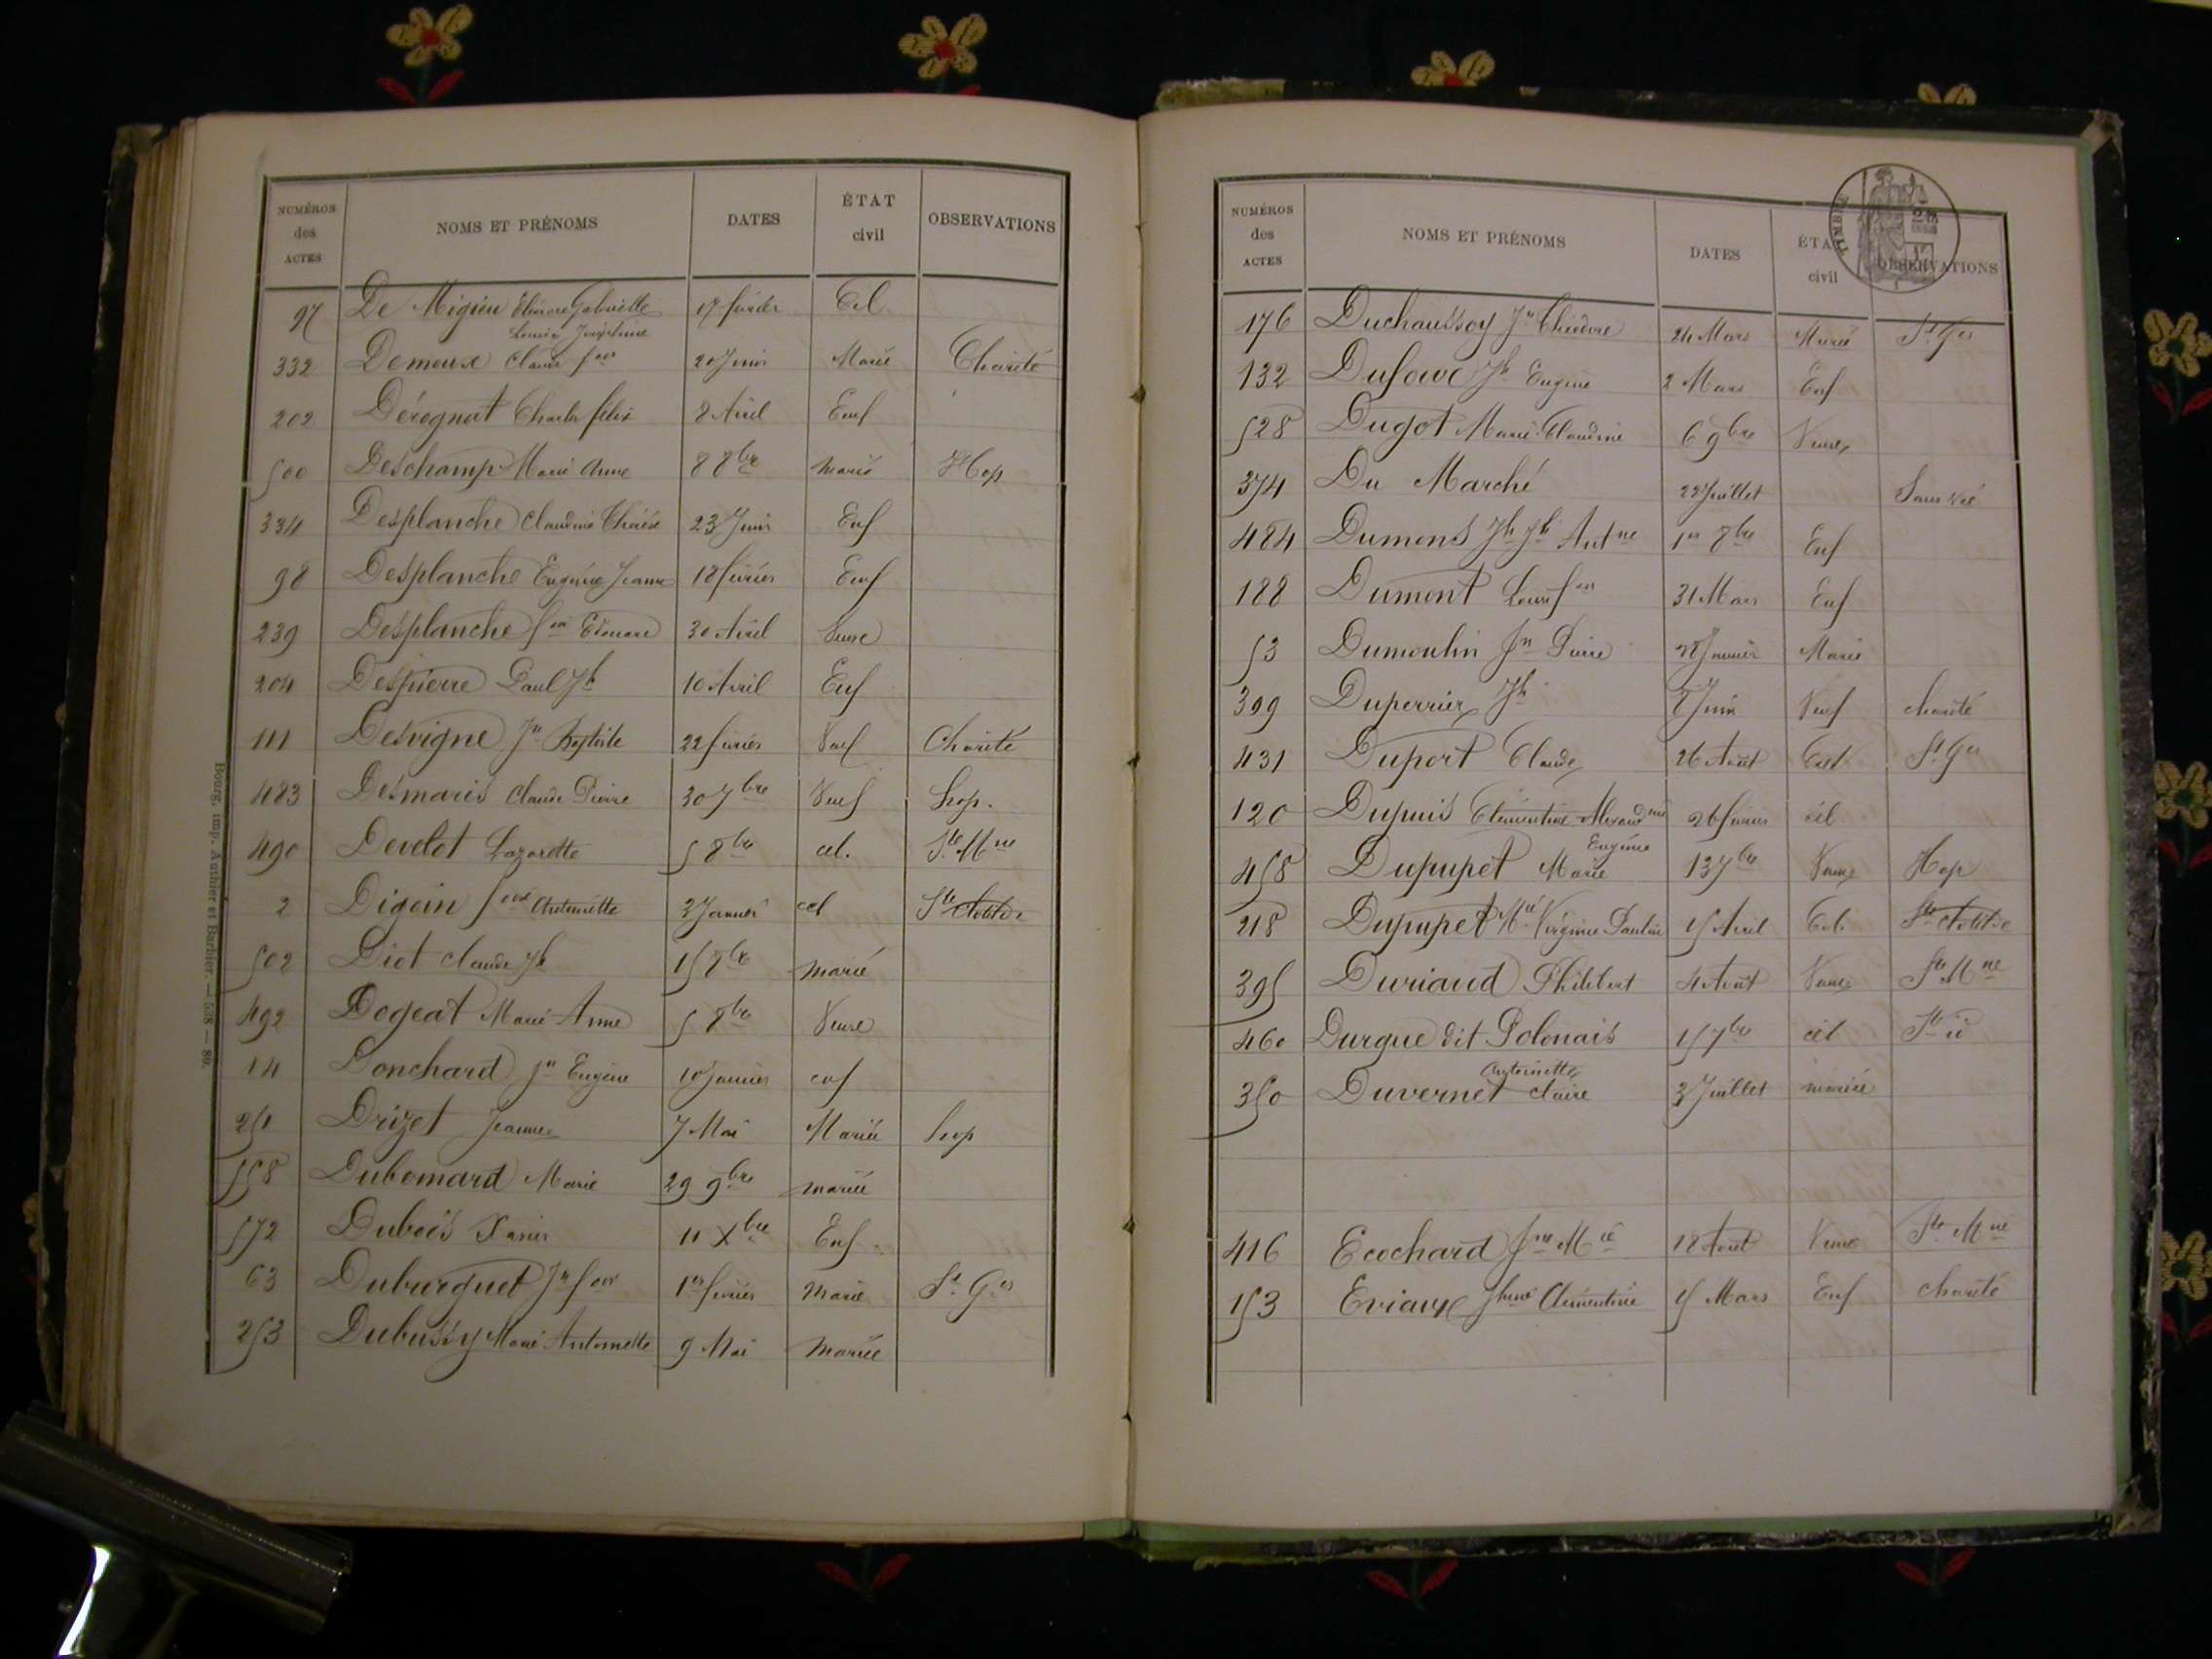 NUMÉROS des ACTES NOMS ET PRÉNOMS DATES ÉTAT civil OBSERVATIONS
97 De Migieu Eléonore Gabrielle 17 février Cel
Louise Joséphine
332 Demoux Claude fois 20 Juin Marié Charité
202 Dérognat Charles félix 8 Avril Enf
500 Deschamp Marie Anne 8 8bre mariée Hop
334 Desplanche Claudine Thérèse 23 Juin Enf
98 Desplanche Eugénie Jeanne 18 février Enf
239 Desplanche fois Edouard 30 Avril
204 Despierre Paul Jh 10 Avril Enf
111 Desvigne Jn Baptiste 22 février Veuf Charité
483 Desmaris Claude Pierre 30 7bre Veuf hop.
490 Devélot Lazarette 5 8bre cel. Ste Mne
2 Digoin foise Antoinette 3 Janvier cel Ste Clotilde
502 Diot claude Jh 15 8bre marié
492 Dogeat Marie Anne 5 8bre Veuve
14 Donchard Jn Eugène 10 Janvier enf
251 Drizet Jeanne 7 Mai Mariée hop
558 Dubomard Marie 29 9bre mariée
572 Dubois Xavier 11 Xbre Enf
63 Duburguet Jn fois 1er février marié St Ges
253 Dubussy Marie Antoinette 9 Mai Mariée
Bourg, imp. Authier et Barbier. — 538 — 89.
NUMÉROS des ACTES NOMS ET PRÉNOMS DATES ÉTAT civil OBSERVATIONS
TIMBRE
176 Duchaussoy Jn Théodore 24 Mars Marié St Ges
132 Dufour Jh Eugène 2 Mars Enf
528 Dugot Marie Claudine 6 9bre Veuve
374 Du Marché 22 Juillet Sans vie
484 Dumond Jh Jh Antne 1er 8bre Enf
188 Dumont Louis fois 31 Mars Enf
53 Dumoulin Jn Pierre 28 Janvier Marié
309 Duperrier Jh 8 Juin Veuf charité
431 Duport Claude 26 Août Cel St Ges
120 Dupuis Clémentine Alexandrine 26 février cél
Eugénie
458 Dupupet Marie 13 7bre Veuve Hop
218 Dupupet Mie Virginie Pauline 15 Avril Cel. Ste Clotilde
395 Duriaud Philibert 4 Août Ste Mne
460 Durgue dit Polonais 15 7bre cél
Antoinette
350 Duvernet Claire 3 Juillet mariée
416 Ecochard fne Mie 18 Août Veuve Ste Mne
153 Eviaux Jhine Clémentine 15 Mars Enf charité